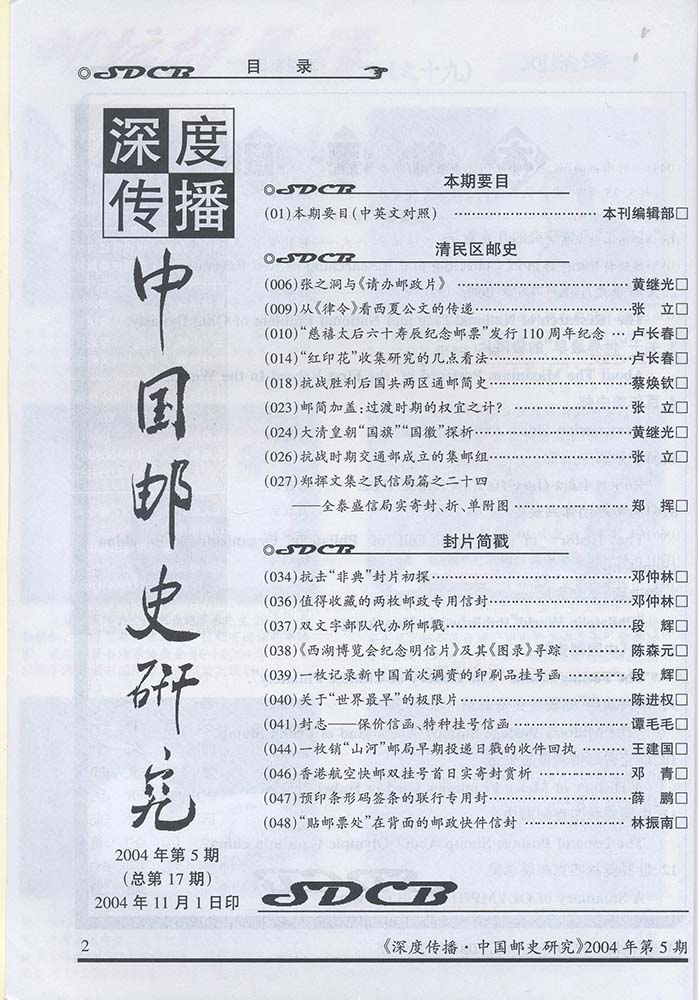 SDCB 目 录 3
深度
传播
中国邮史研究
2004 年第 5 期
(总第 17 期)
2004 年 11 月 1 日印
SDCB 本期要目
(01)本期要目(中英文对照) ……………………… 本刊编辑部□
SDCB 清民区邮史
(006)张之洞与《请办邮政片》 ……………………… 黄继光□
(009)从《律令》看西夏公文的传递……………………… 张 立□
(010)“慈禧太后六十寿辰纪念邮票”发行 110 周年纪念 … 卢长春□
(014)“红印花”收集研究的几点看法……………………… 卢长春□
(018)抗战胜利后国共两区通邮简史……………………… 蔡焕钦□
(023)邮简加盖:过渡时期的权宜之计? ……………………… 张 立□
(024)大清皇朝“国旗”“国徽”探析……………………… 黄继光□
(026)抗战时期交通部成立的集邮组……………………… 张 立□
(027)郑挥文集之民信局篇之二十四
——全泰盛信局实寄封、折、单附图 ……………… 郑 挥□
SDCB 封片简戳
(034)抗击“非典”封片初探……………………… 邓仲林□
(036)值得收藏的两枚邮政专用信封……………………… 邓仲林□
(037)双文字部队代办所邮戳……………………… 段 辉□
(038)《西湖博览会纪念明信片》及其《图录》寻踪 ………… 陈森元□
(039)一枚记录新中国首次调资的印刷品挂号函 ………… 段 辉□
(040)关于“世界最早”的极限片……………………… 陈进权□
(041)封志——保价信函、特种挂号信函……………………… 谭毛毛□
(044)一枚销“山河”邮局早期投递日戳的收件回执 ……… 王建国□
(046)香港航空快邮双挂号首日实寄封赏析 ……………… 邓 青□
(047)预印条形码签条的联行专用封……………………… 薛 鹏□
(048)“贴邮票处”在背面的邮政快件信封 ……………… 林振南□
SDCB
2 《深度传播·中国邮史研究》2004 年第 5 期